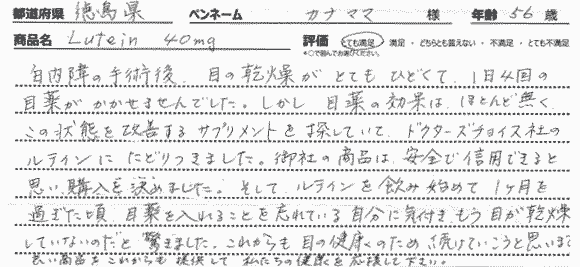 都道府県 徳島県 ペンネーム カナママ 様 年齢 56 歳
商品名 Lutein 40mg 評価 とても満足 ・ 満足 ・ どちらとも言えない ・ 不満足 ・ とても不満足
*○で囲んでお選びください。
白内障の手術後、目の乾燥がとてもひどくて、1日4回の
目薬がかかせませんでした。しかし目薬の効果は、ほとんど無く、
この状態を改善するサプリメントを探していて、ドクターズチョイス社の
ルテインにたどりつきました。御社の商品は、安全で信用できると
思い、購入を決めました。そして、ルテインを飲み始めて1ヶ月を
過ぎた頃、目薬を入れることを忘れている自分に気付きもう目が乾燥
していないのだと驚きました。これからも目の健康のため続けていこうと思います
良い商品をこれからも提供して私たちの健康を応援して下さい。